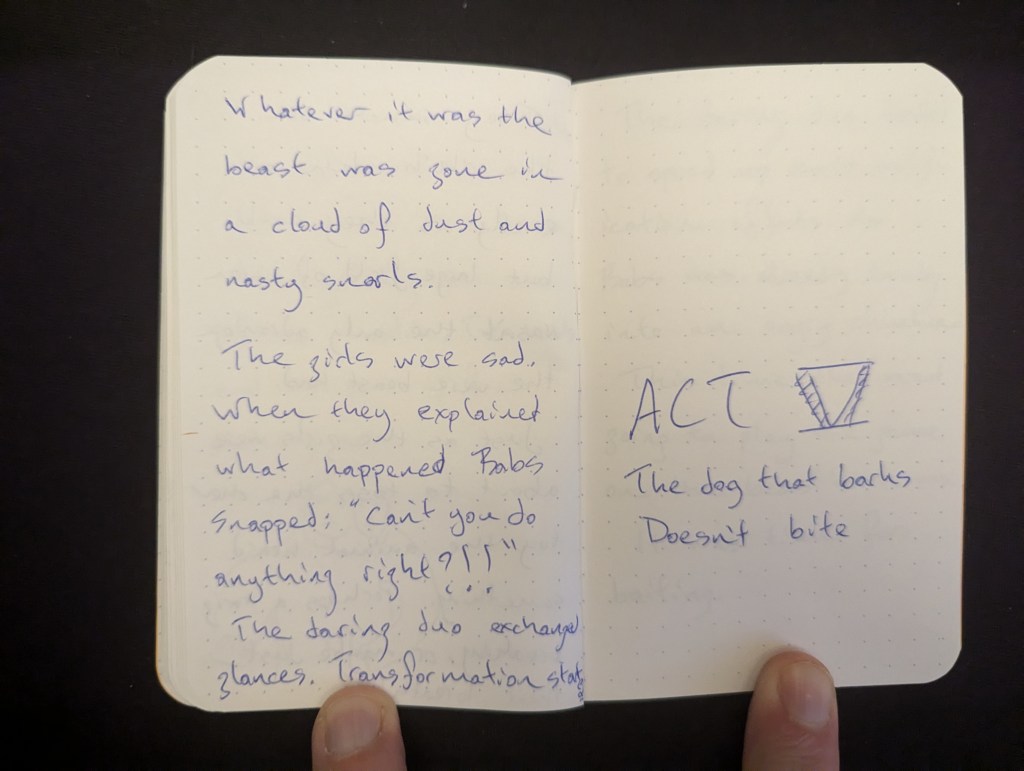 Whatever it was the
beast was gone in
a cloud of dust and
nasty snarls.
The girls were sad.
When they explained
what happened Babs
snapped: "Can't you do
anything right?!!"
The daring duo exchanged
glances. Transformation stat
ACT V
The dog that barks
Doesn't bite